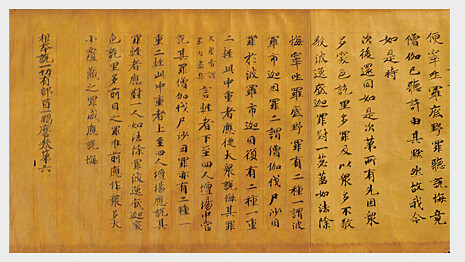 便窣吐羅底野罪聽說悔竟
僧伽已聽許由其默然故我今
如是持
次後還同如是次第所有先因衆
多突色訖里多罪及以衆多不敬
教波逸底迦罪對一苾蒭如法除
悔窣吐羅底野罪有二種一謂波
羅市迦因罪二謂僧伽伐尸沙因
罪於波羅市迦因復有二種一重
二輕此中重者應從大衆說悔其罪
言輕者下至四人壇場中當
說其罪僧伽伐尸沙因罪亦有二種一
重二輕此中重者上至四人壇場應說其
罪輕者應對一人如法除罪波逸底迦突
色訖里多前目之罪准前應作衆多大
小覆藏之罪咸應說悔
根本說一切有部百一羯磨卷第六